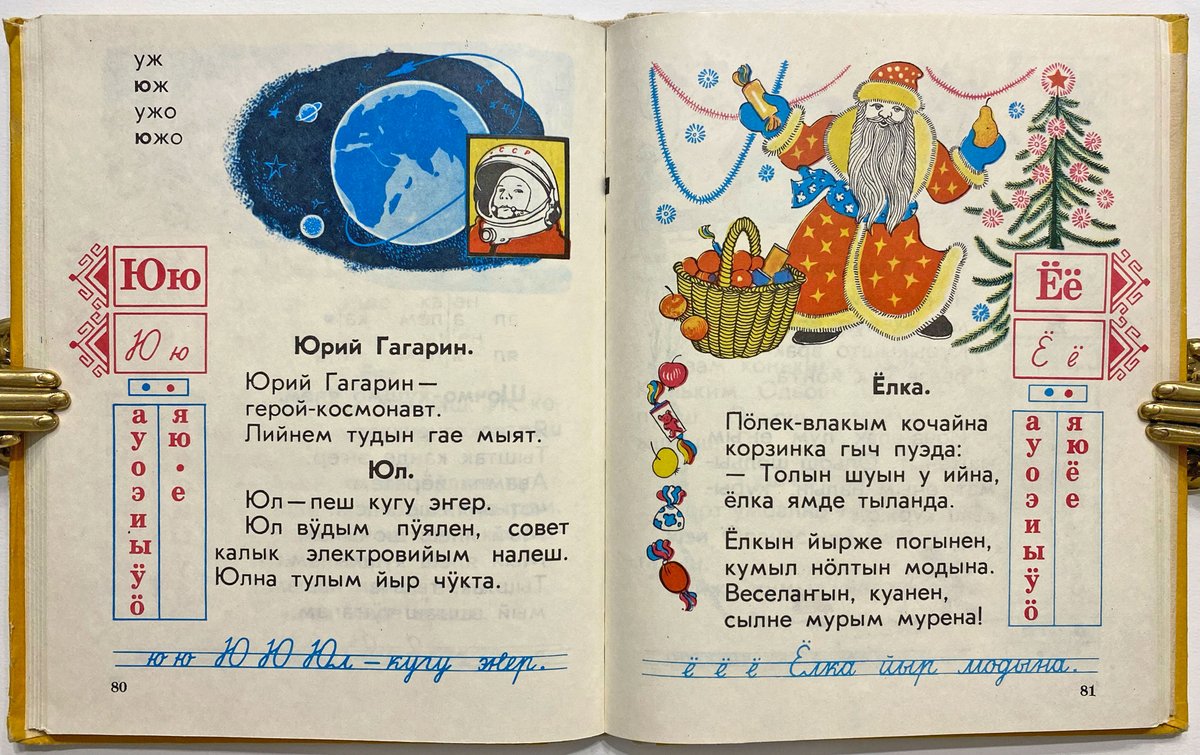 уж
юж
ужо
южо
СССР
Юю
Ю ю
Юрий Гагарин.
Юрий Гагарин—
герой-космонавт.
Лийнем тудын гае мыят.
Юл.
Юл—пеш кугу эҥер.
Юл вӱдым пӱялен, совет
калык электровийым налеш.
Юлна тулым йыр чӱкта.
а я
у ю
о •
э е
и
ы
ӱ
ӧ
ю ю Ю Ю Юл — кугу эҥер.
80
Ёё
Ё ё
Ёлка.
Пӧлек-влакым кочайна
корзинка гыч пуэда:
— Толын шуын у ийна,
ёлка ямде тыланда.
Ёлкын йырже погынен,
кумыл нӧлтын модына.
Веселаҥын, куанен,
сылне мурым мурена!
а я
у ю
о ё
э е
и
ы
ӱ
ӧ
ё ё ё Ёлка йыр модына.
81